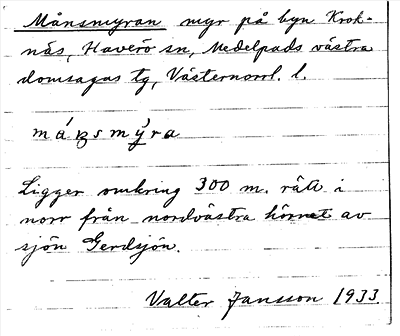 Månsmyran myr på byn Krok-
näs, Haverö sn, Medelpads västra
domsagas tg, Västernorrl. l.
mánsmy̆ra
Ligger omkring 300 m. rätt i
norr från nordvästra hörnet av
sjön Gerdsjön.
Valter Jansson 1933